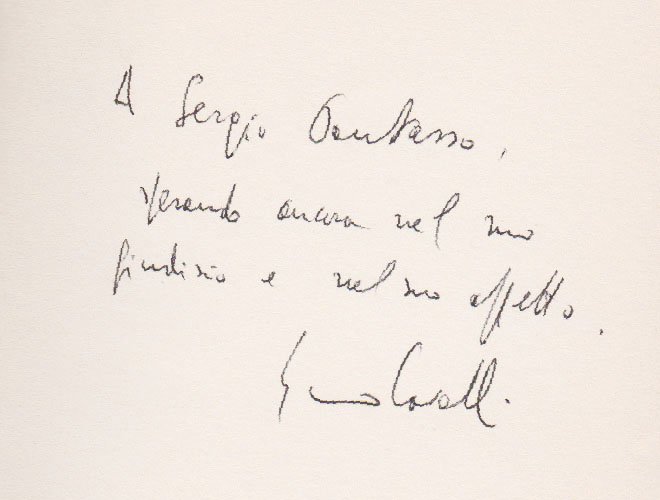 A Sergio Pautasso,
sperando ancora nel suo
giudizio e nel suo affetto.